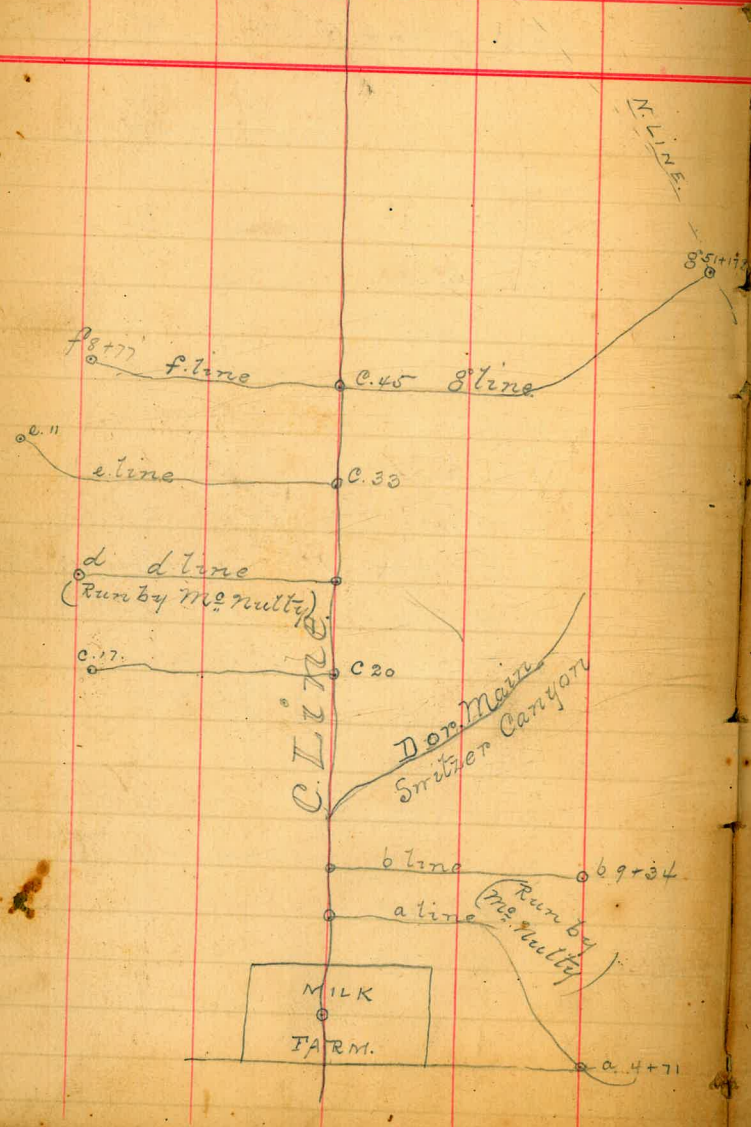 N. LINE.
g 51+17
f 8+77
f. line
C. 45
g line
e. 11
e. line
C. 33
d
d line
(Run by Mc Nulty)
C. 17.
C 20
C. Line
D or. Main
Switzer Canyon
b line
b 9+34
a line
(Run by
Mc. Nulty)
MILK
FARM.
a. 4+71